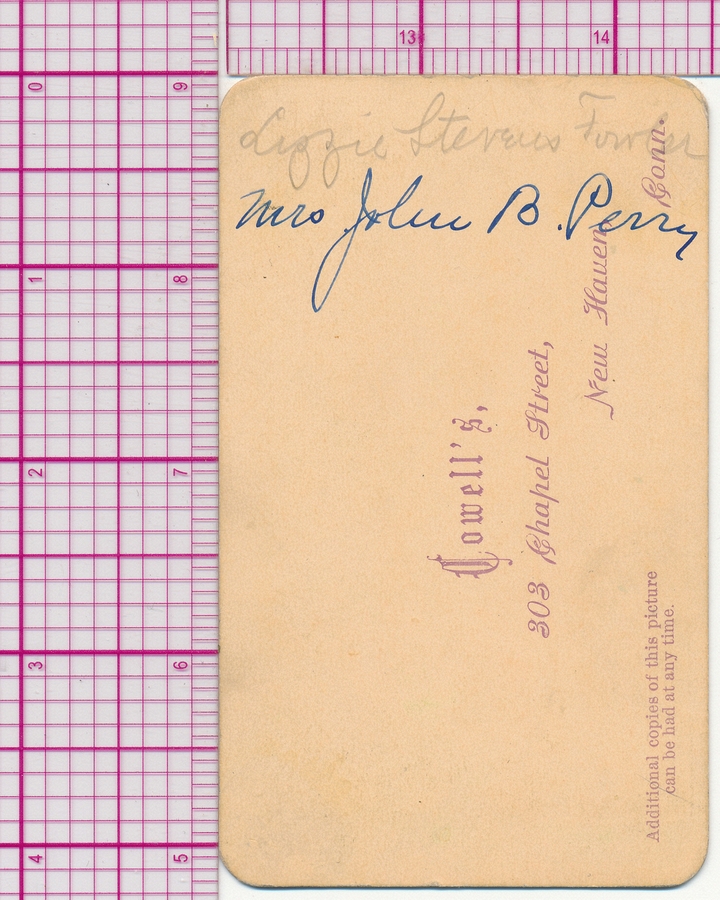 Lizzie Stevens Fowler
Mrs John B. Perry
Cowell's,
303 Chapel Street,
New Haven Conn.
Additional copies of this picture
can be had at any time.
13
14
0
1
2
3
4
9
8
7
6
5